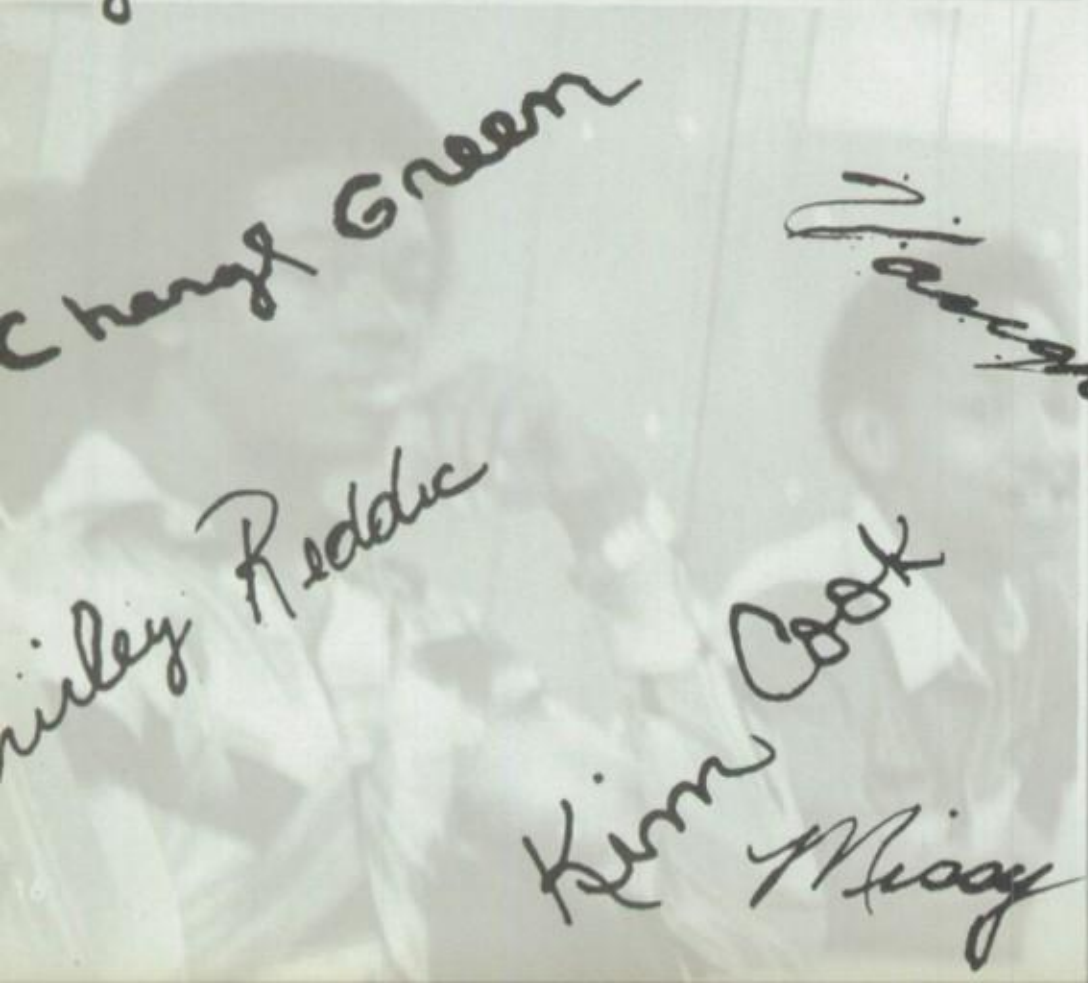 Cheryl Green
Reddic
Kim Cook
Missy